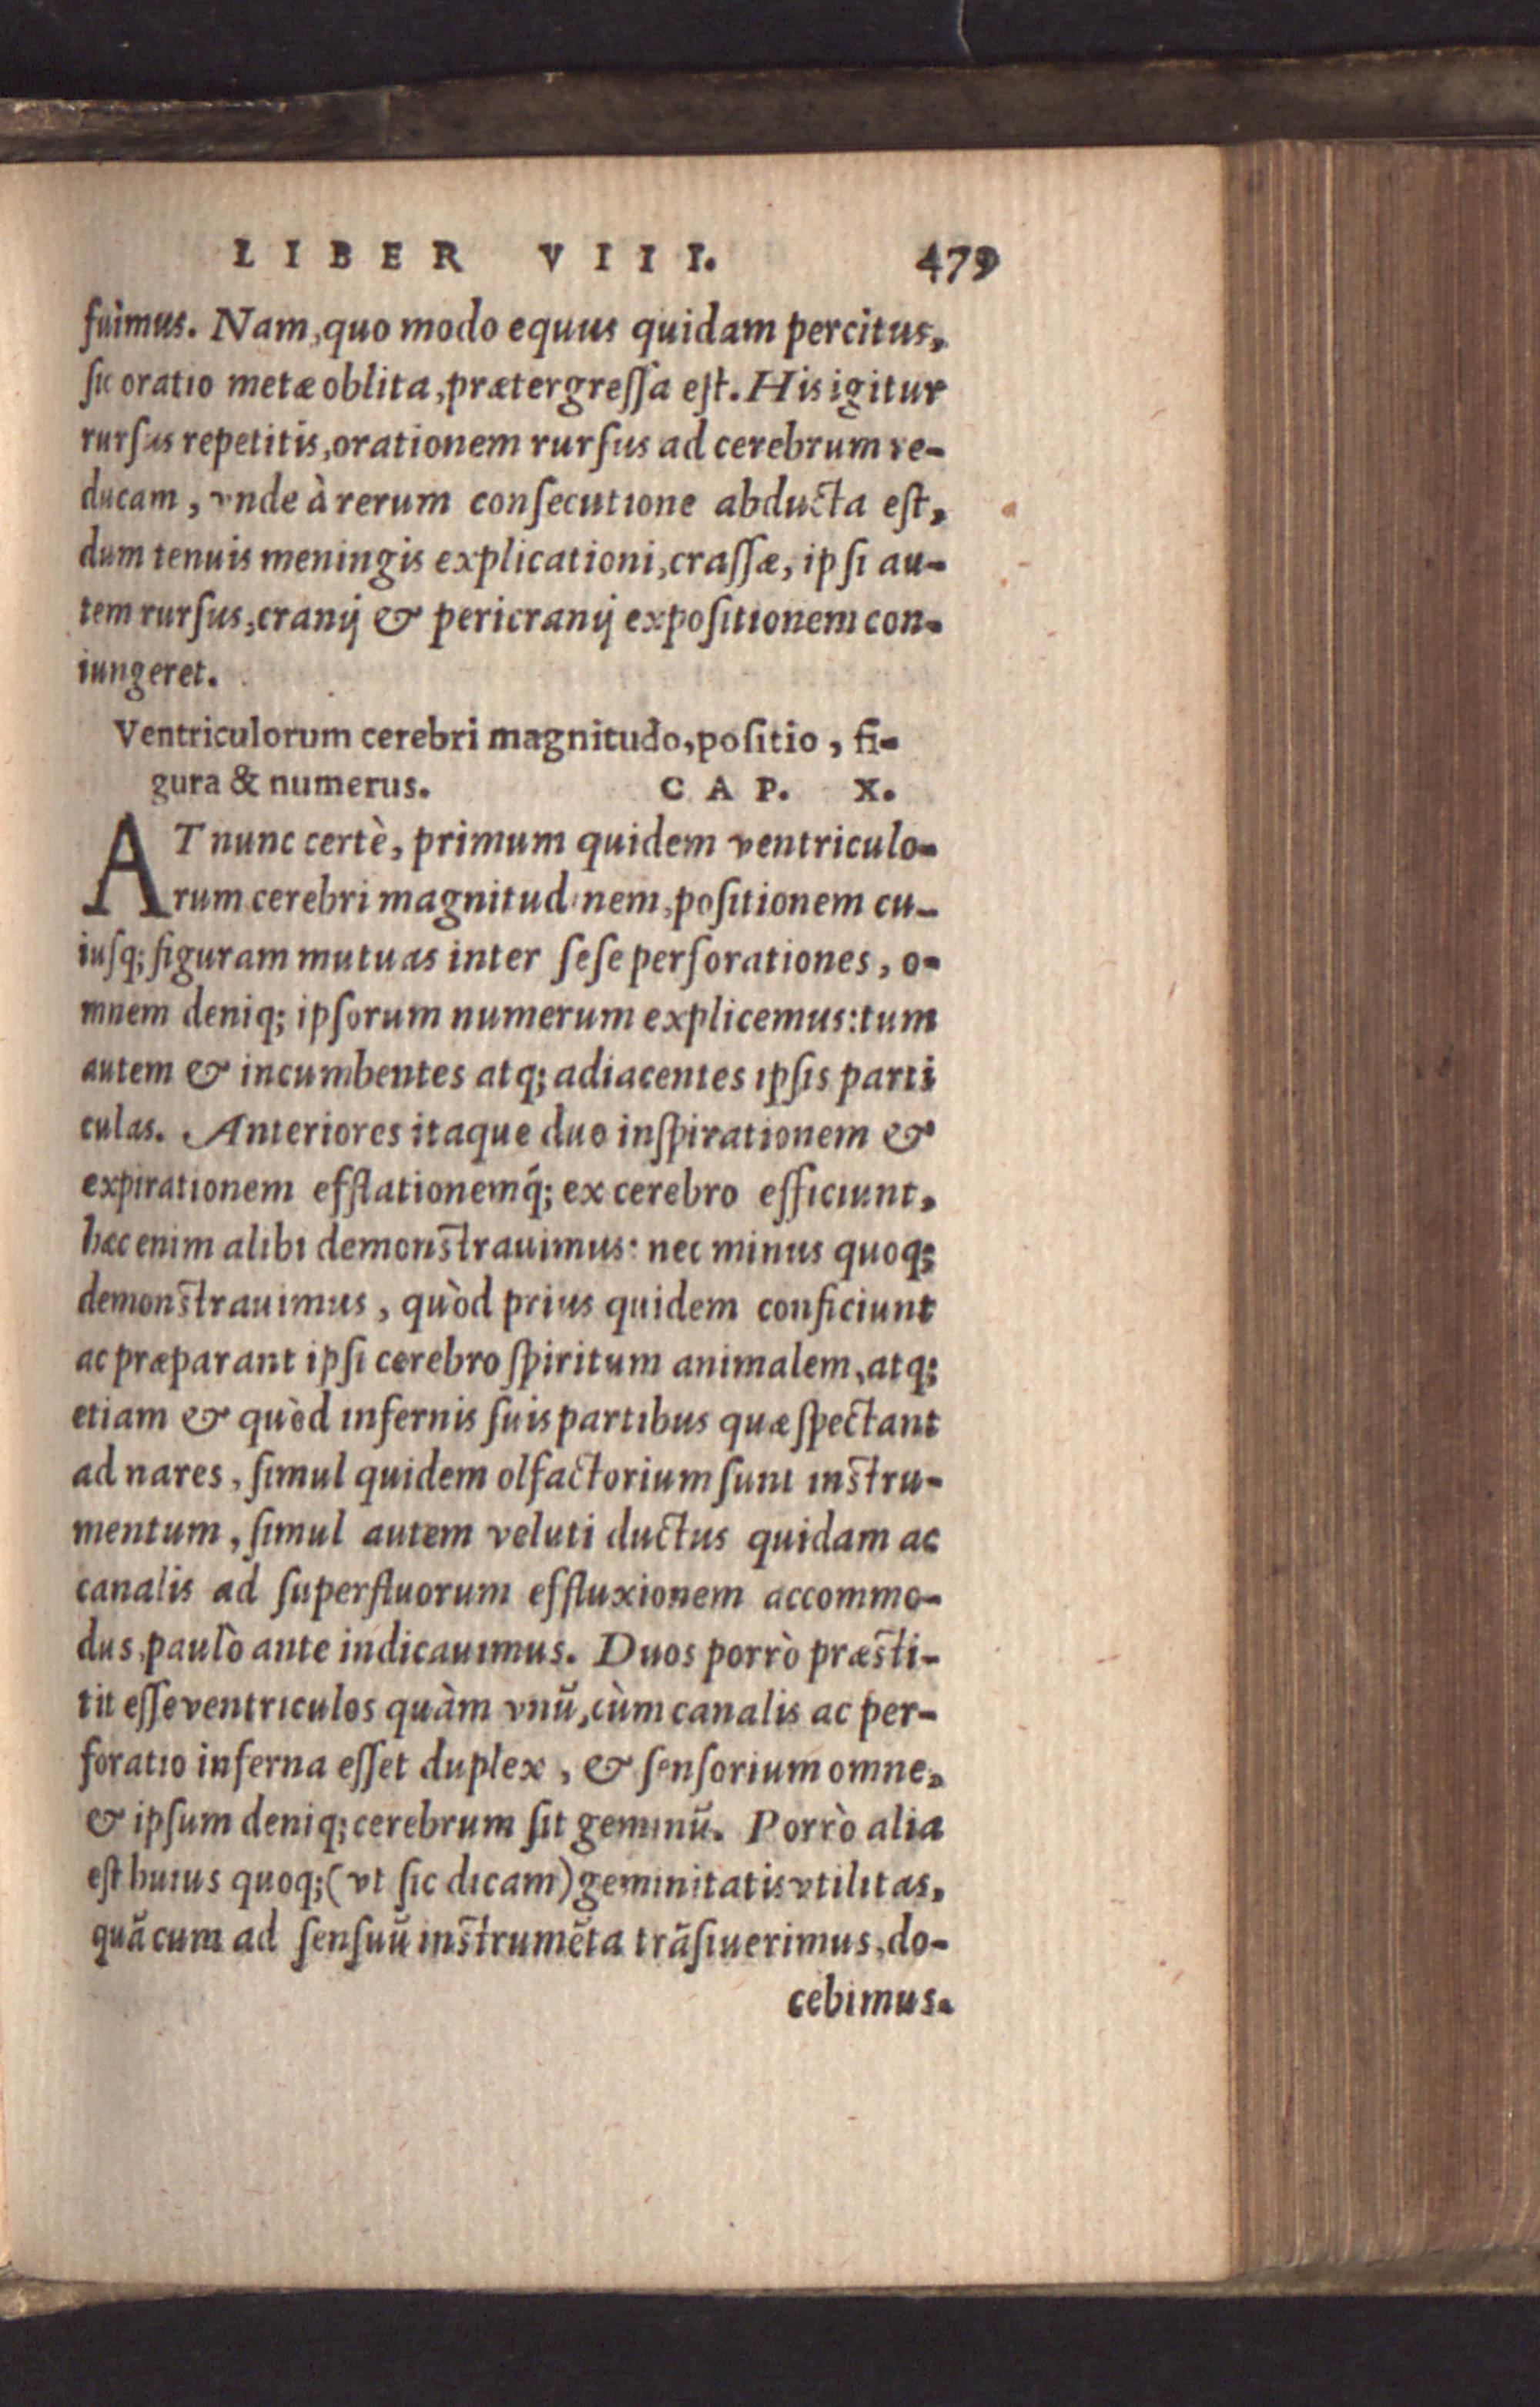 LIBER VIII. 479
fuimus. Nam, quo modo equus quidam percitus,
sic oratio metæ oblita, prætergressa est. His igitur
rursus repetitis, orationem rursus ad cerebrum re-
ducam, vnde à rerum consecutione abducta est,
dum tenuis meningis explicationi, crassæ, ipsi au-
tem rursus, cranij & pericranij expositionem con-
iungeret.
Ventriculorum cerebri magnitudo, positio, fi-
gura & numerus. CAP. X.
AT nunc certè, primum quidem ventriculo-
rum cerebri magnitudinem, positionem cu-
iusq; figuram mutuas inter sese perforationes, o-
mnem deniq; ipsorum numerum explicemus: tum
autem & incumbentes atq; adiacentes ipsis parti
culas. Anteriores itaque duo inspirationem &
expirationem efflationemq́; ex cerebro efficiunt,
hæc enim alibi demonstrauimus: nec minus quoq;
demonstrauimus, quòd prius quidem conficiunt
ac præparant ipsi cerebro spiritum animalem, atq;
etiam & quòd infernis suis partibus quæ spectant
ad nares, simul quidem olfactorium sunt instru-
mentum, simul autem veluti ductus quidam ac
canalis ad superfluorum effluxionem accommo-
dus, paulò ante indicauimus. Duos porrò præsti-
tit esse ventriculos quàm vnū, cùm canalis ac per-
foratio inferna esset duplex, & sensorium omne,
& ipsum deniq; cerebrum sit geminū. Porrò alia
est huius quoq; (vt sic dicam) geminitatis vtilitas,
quā cum ad sensuū instrumēta trāsiuerimus, do-
cebimus.